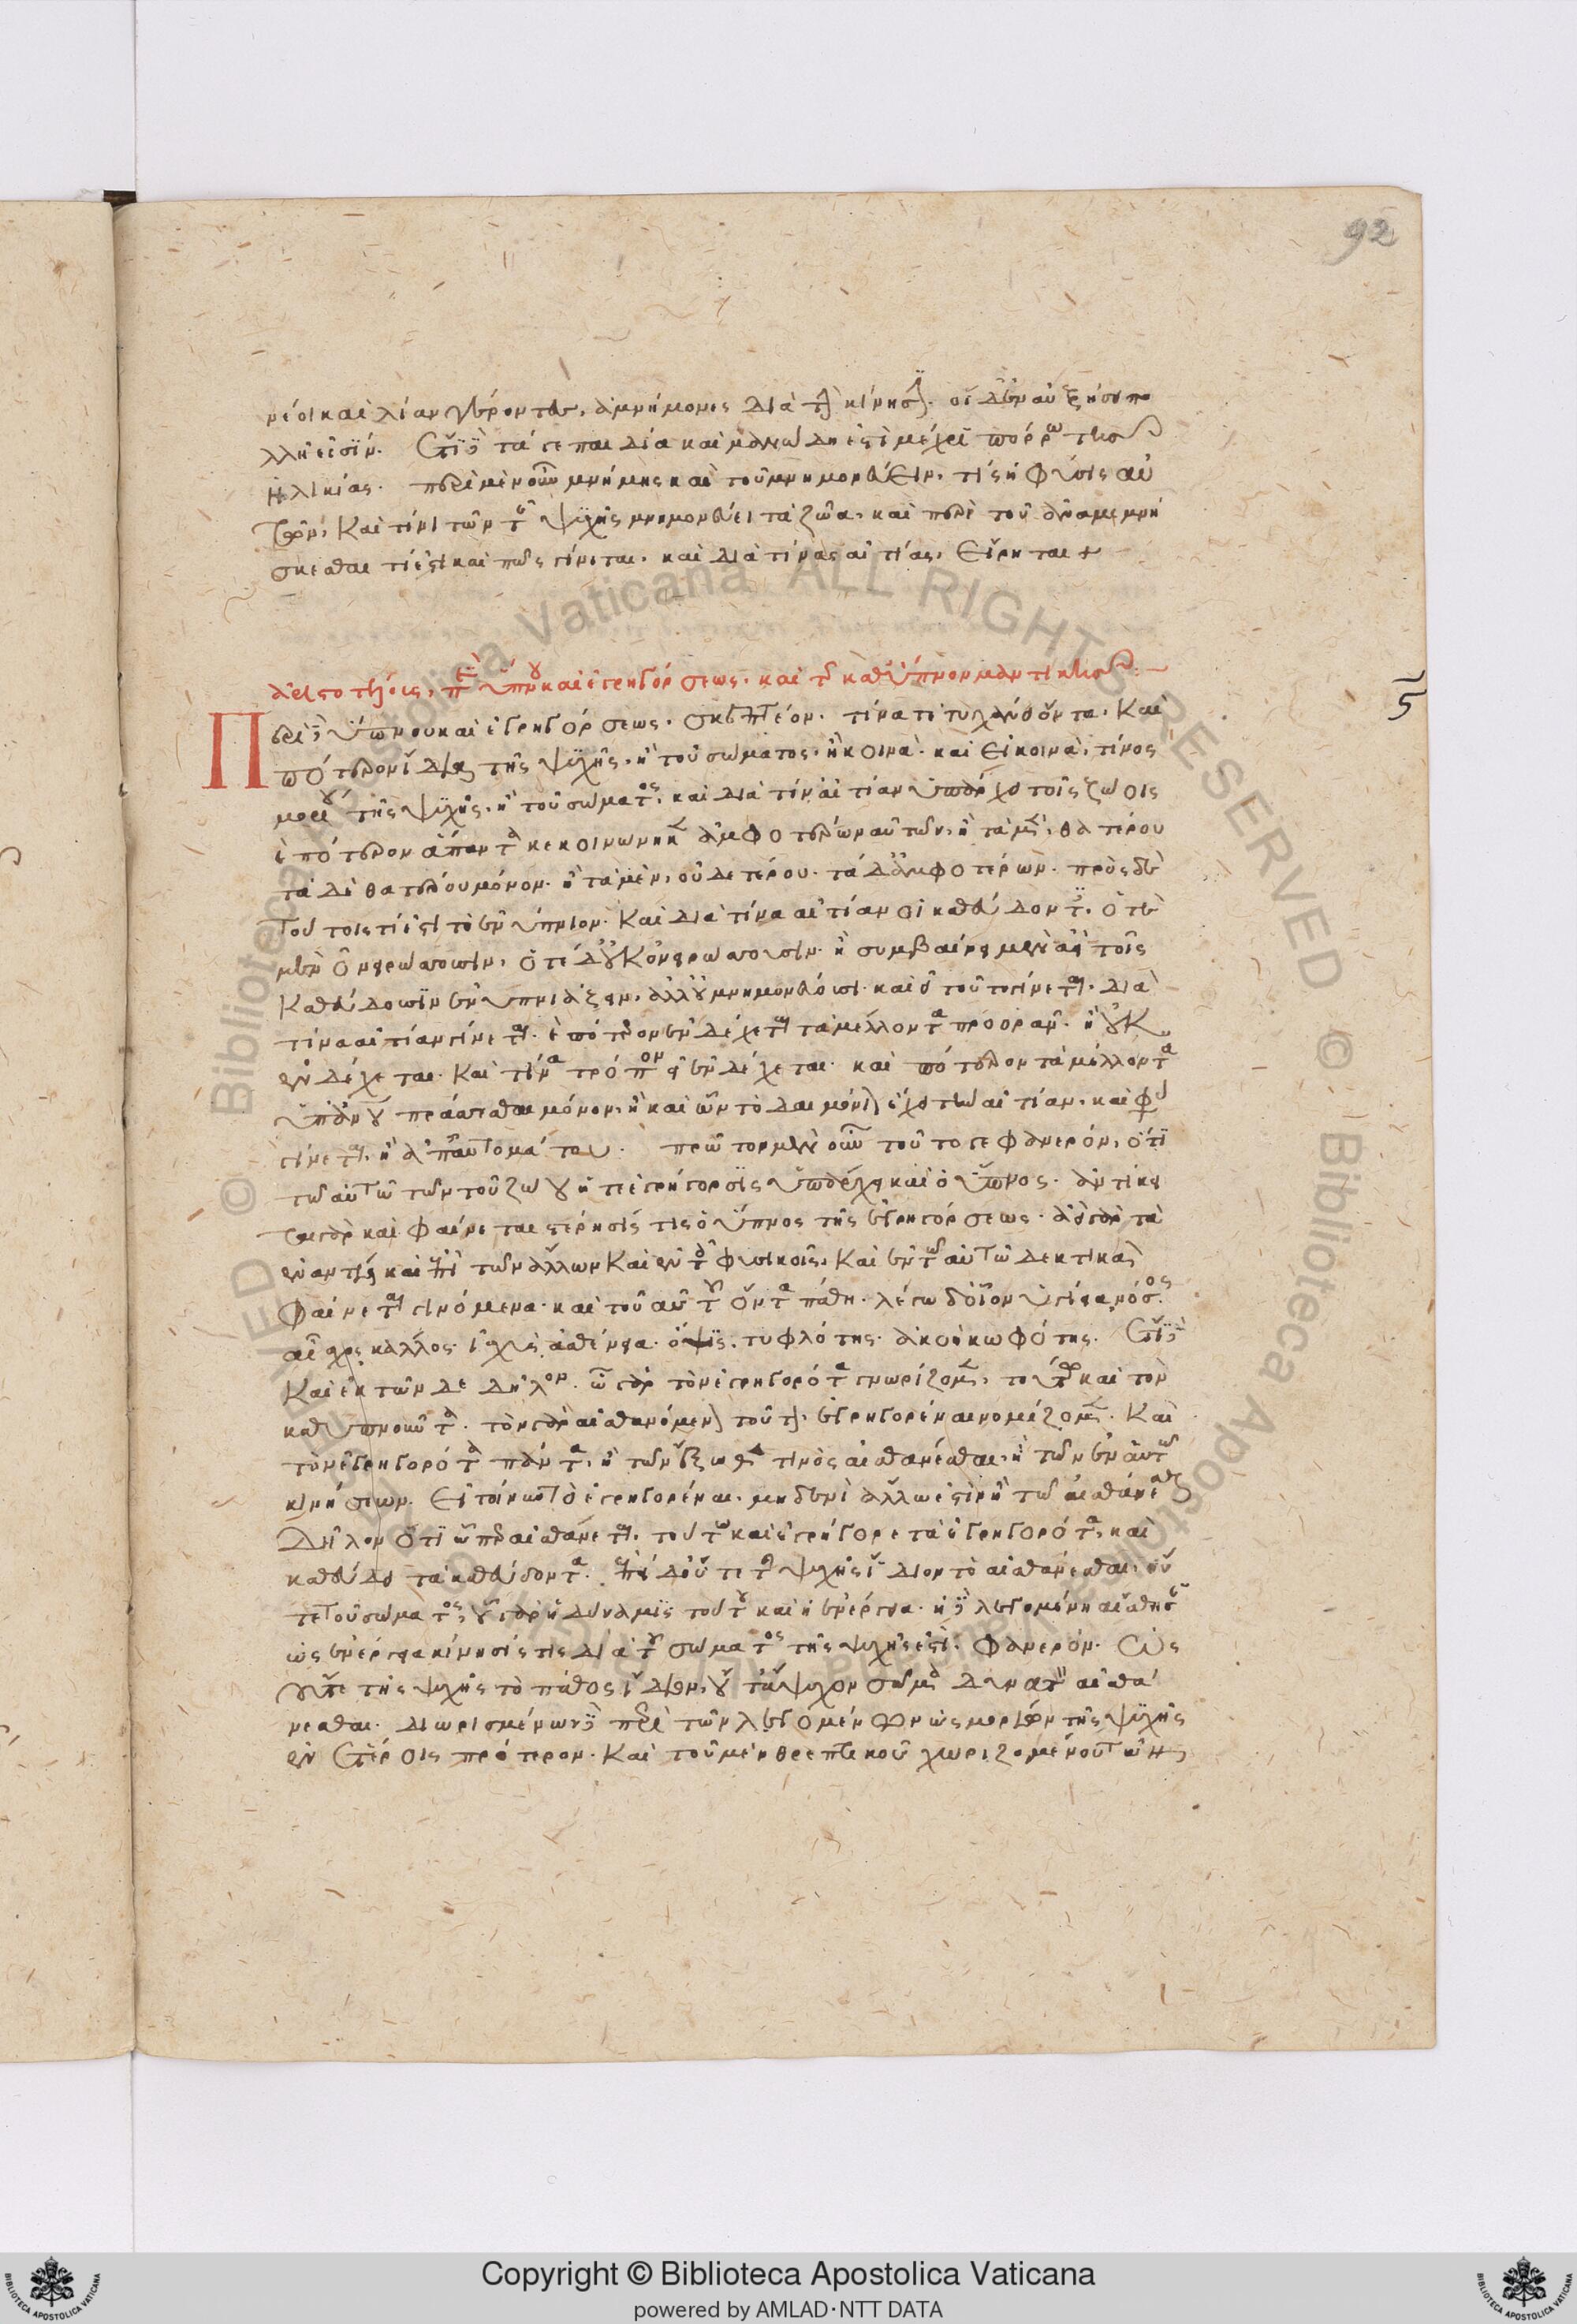 92
νέοι καὶ λίαν γέροντες, ἀμνήμονες διὰ τὴν κίνησιν. οἱ μὲν ἐν αὐξήσει πο
λλῇ εἰσίν. ἔτι δὲ τά γε παιδία καὶ νανώδη ἐστὶ μέχρι πόρρω τῆς
ἡλικίας. περὶ μὲν οὖν μνήμης καὶ τοῦ μνημονεύειν, τίς ἡ φύσις αὐ
τῶν, καὶ τίνι τῶν τῆς ψυχῆς μνημονεύει τὰ ζῶα, καὶ περὶ τοῦ ἀναμιμνή
σκεσθαι τί ἐστι καὶ πῶς γίνεται, καὶ διὰ τίνας αἰτίας, εἴρηται +
ἀριστοτέλους, περὶ ὕπνου καὶ ἐγρηγόρσεως, καὶ τῆς καθ' ὕπνον μαντικῆς
Περὶ δὲ ὕπνου καὶ ἐγρηγόρσεως, σκεπτέον, τίνα τε τυγχάνει ὄντα, καὶ
πότερον ἴδια τῆς ψυχῆς, ἢ τοῦ σώματος, ἢ κοινά. καὶ εἰ κοινὰ, τίνος
μορίου τῆς ψυχῆς, ἢ τοῦ σώματος, καὶ διὰ τίν' αἰτίαν ὑπάρχει τοῖς ζώοις
ἐ πότερον ἅπαντα κεκοινώνηκεν ἀμφοτέρων αὐτῶν, ἢ τὰ μὲν, θατέρου
τὰ δὲ θατέρου μόνον. ἢ τὰ μὲν, οὐδετέρου. τὰ δ' ἀμφοτέρων. πρὸς δὲ
τούτοις τί ἐστι τὸ ἐνύπνιον. καὶ διὰ τίνα αἰτίαν οἱ καθεύδοντες, ὁτὲ
μὲν ὀνειρώττουσιν, ὁτὲ δ' οὐκ ὀνειρώττουσιν. ἢ συμβαίνει μὲν ἀεὶ τοῖς
καθεύδουσιν ἐνυπνιάζειν, ἀλλ' οὐ μνημονεύουσι. καὶ εἰ τοῦτο γίνεται, διὰ
τίνα αἰτίαν γίνεται. ἐ πότερον ἐνδέχεται τὰ μέλλοντα προορᾶν. ἢ οὐκ
ἐνδέχεται. καὶ τίνα τρόπον εἰ ἐνδέχεται. καὶ πότερον τὰ μέλλοντα
ὑπ' ἀνου πράσσεσθαι μόνον, ἢ καὶ ὧν τὸ δαιμόνιον ἔχει τὴν αἰτίαν, καὶ φύσει
γίνεται, ἢ ἀπ' αὐτομάτου. πρῶτον μὲν οὖν τοῦτό γε φανερόν, ὅτι
τῶ αὐτῶ τῶν τοῦ ζώου ἥ τε ἐγρήγορσις ὑπάρχει καὶ ὁ ὕπνος. ἀντίκει
ται γὰρ καὶ φαίνεται στέρησίς τις ὁ ὕπνος τῆς ἐγρηγόρσεως. ἀεὶ γὰρ τὰ
ἐναντία καὶ ἐπὶ τῶν ἄλλων καὶ ἐν τοῖς φυσικοῖς, καὶ ἐν τῶ αὐτῶ δεκτικῶ
φαίνεται γινόμενα. καὶ τοῦ αὐτοῦ ὄντα πάθη. λέγω δ' οἷον ὑγίεια νόσος.
αἶσχος κάλλος. ἰσχὺς ἀσθένεια. ὄψις, τυφλότης. ἀκοὴ κωφότης. ἔτι δὲ
καὶ ἐκ τῶν δε δῆλον. ὧ γὰρ τὸν ἐγρηγορότα γνωρίζομεν, τούτω καὶ τὸν
καθυπνοῦντα. τὸν γὰρ αἰσθανόμενον τοῦτον, ἐγρηγορέναι νομίζομεν. καὶ
τὸν ἐγρηγορότα πάντα, ἢ τῶν ἔξωθέν τινος αἰσθάνεσθαι, ἢ τῶν ἐν αὐτῶ
κινήσεων. εἰ τοίνυν τὸ ἐγρηγορέναι, μηδενὶ ἄλλω ἐστὶν ἢ τῶ αἰσθάνεσθαι
δῆλον ὅτι ὧπερ αἰσθάνεται, τούτω καὶ ἐγρήγορε τὰ ἐγρηγορότα, καὶ
καθεύδει τὰ καθεύδοντα. ἐπεὶ δὲ οὔτε τῆς ψυχῆς ἴδιον τὸ αἰσθάνεσθαι, οὔ
τε τοῦ σώματος, οὗ γὰρ ἡ δύναμις τούτου καὶ ἡ ἐνέργεια. ἡ δὲ λεγομένη αἴσθησις
ὡς ἐνέργεια κίνησίς τις διὰ τοῦ σώματος τῆς ψυχῆς ἐστί. φανερόν. ὡς
οὔτε τῆς ψυχῆς τὸ πάθος ἴδιον, οὔτ' ἄψυχον σῶμα δυνατὸν αἰσθά
νεσθαι. διωρισμένων δὲ περὶ τῶν λεγομένων ὡς μορίων τῆς ψυχῆς
ἐν ἑτέροις πρότερον. καὶ τοῦ μὲν θρεπτικοῦ χωριζομένου τῶν
Copyright © Biblioteca Apostolica Vaticana
powered by AMLAD·NTT DATA